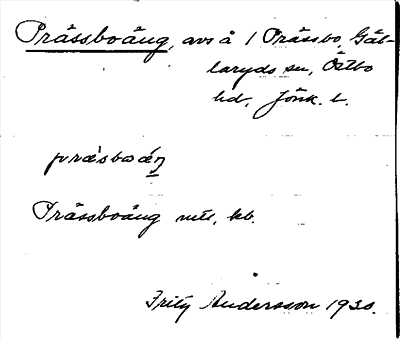 Prässboäng, avs å 1 Prässbo, Gäl-
laryds sn, Östbo
hd, Jönk. l.
præsboäŋ
Prässboäng mtl, kb.
Fritz Andersson 1930.